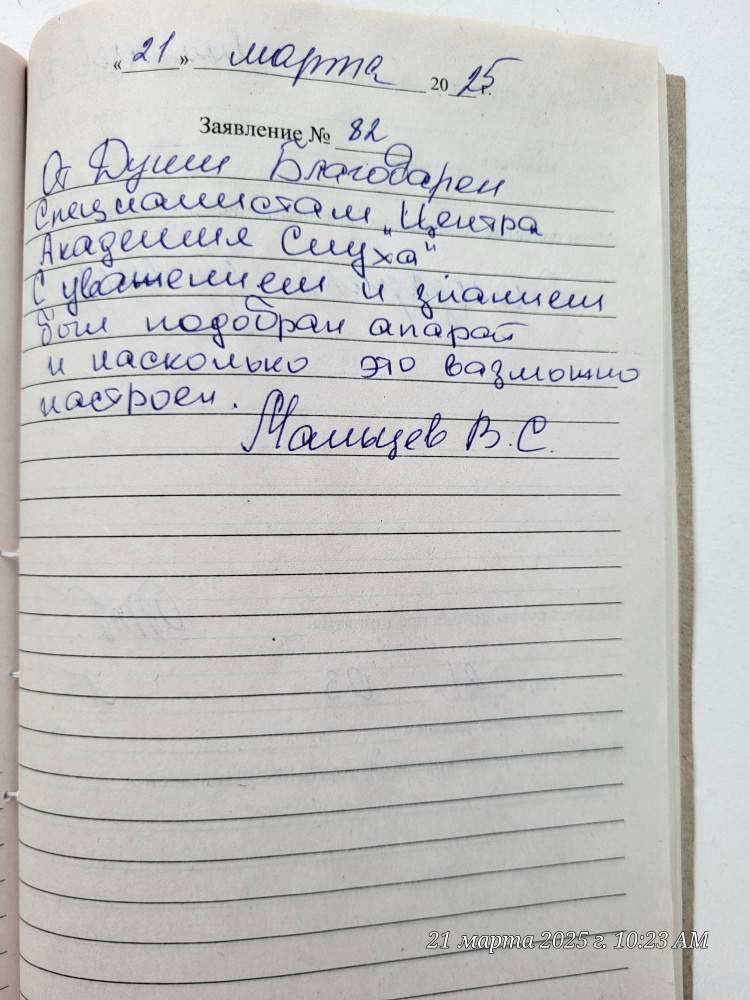 « 21 » марта 20 25 г.
Заявление № 82
От Души Благодарен
Специалистам „Центра
Академия Слуха"
С уважением и знанием
был подобран апарат
и насколько это вазможно
настроен.
Мальцев В.С.
21 марта 2025 г. 10:23 AM